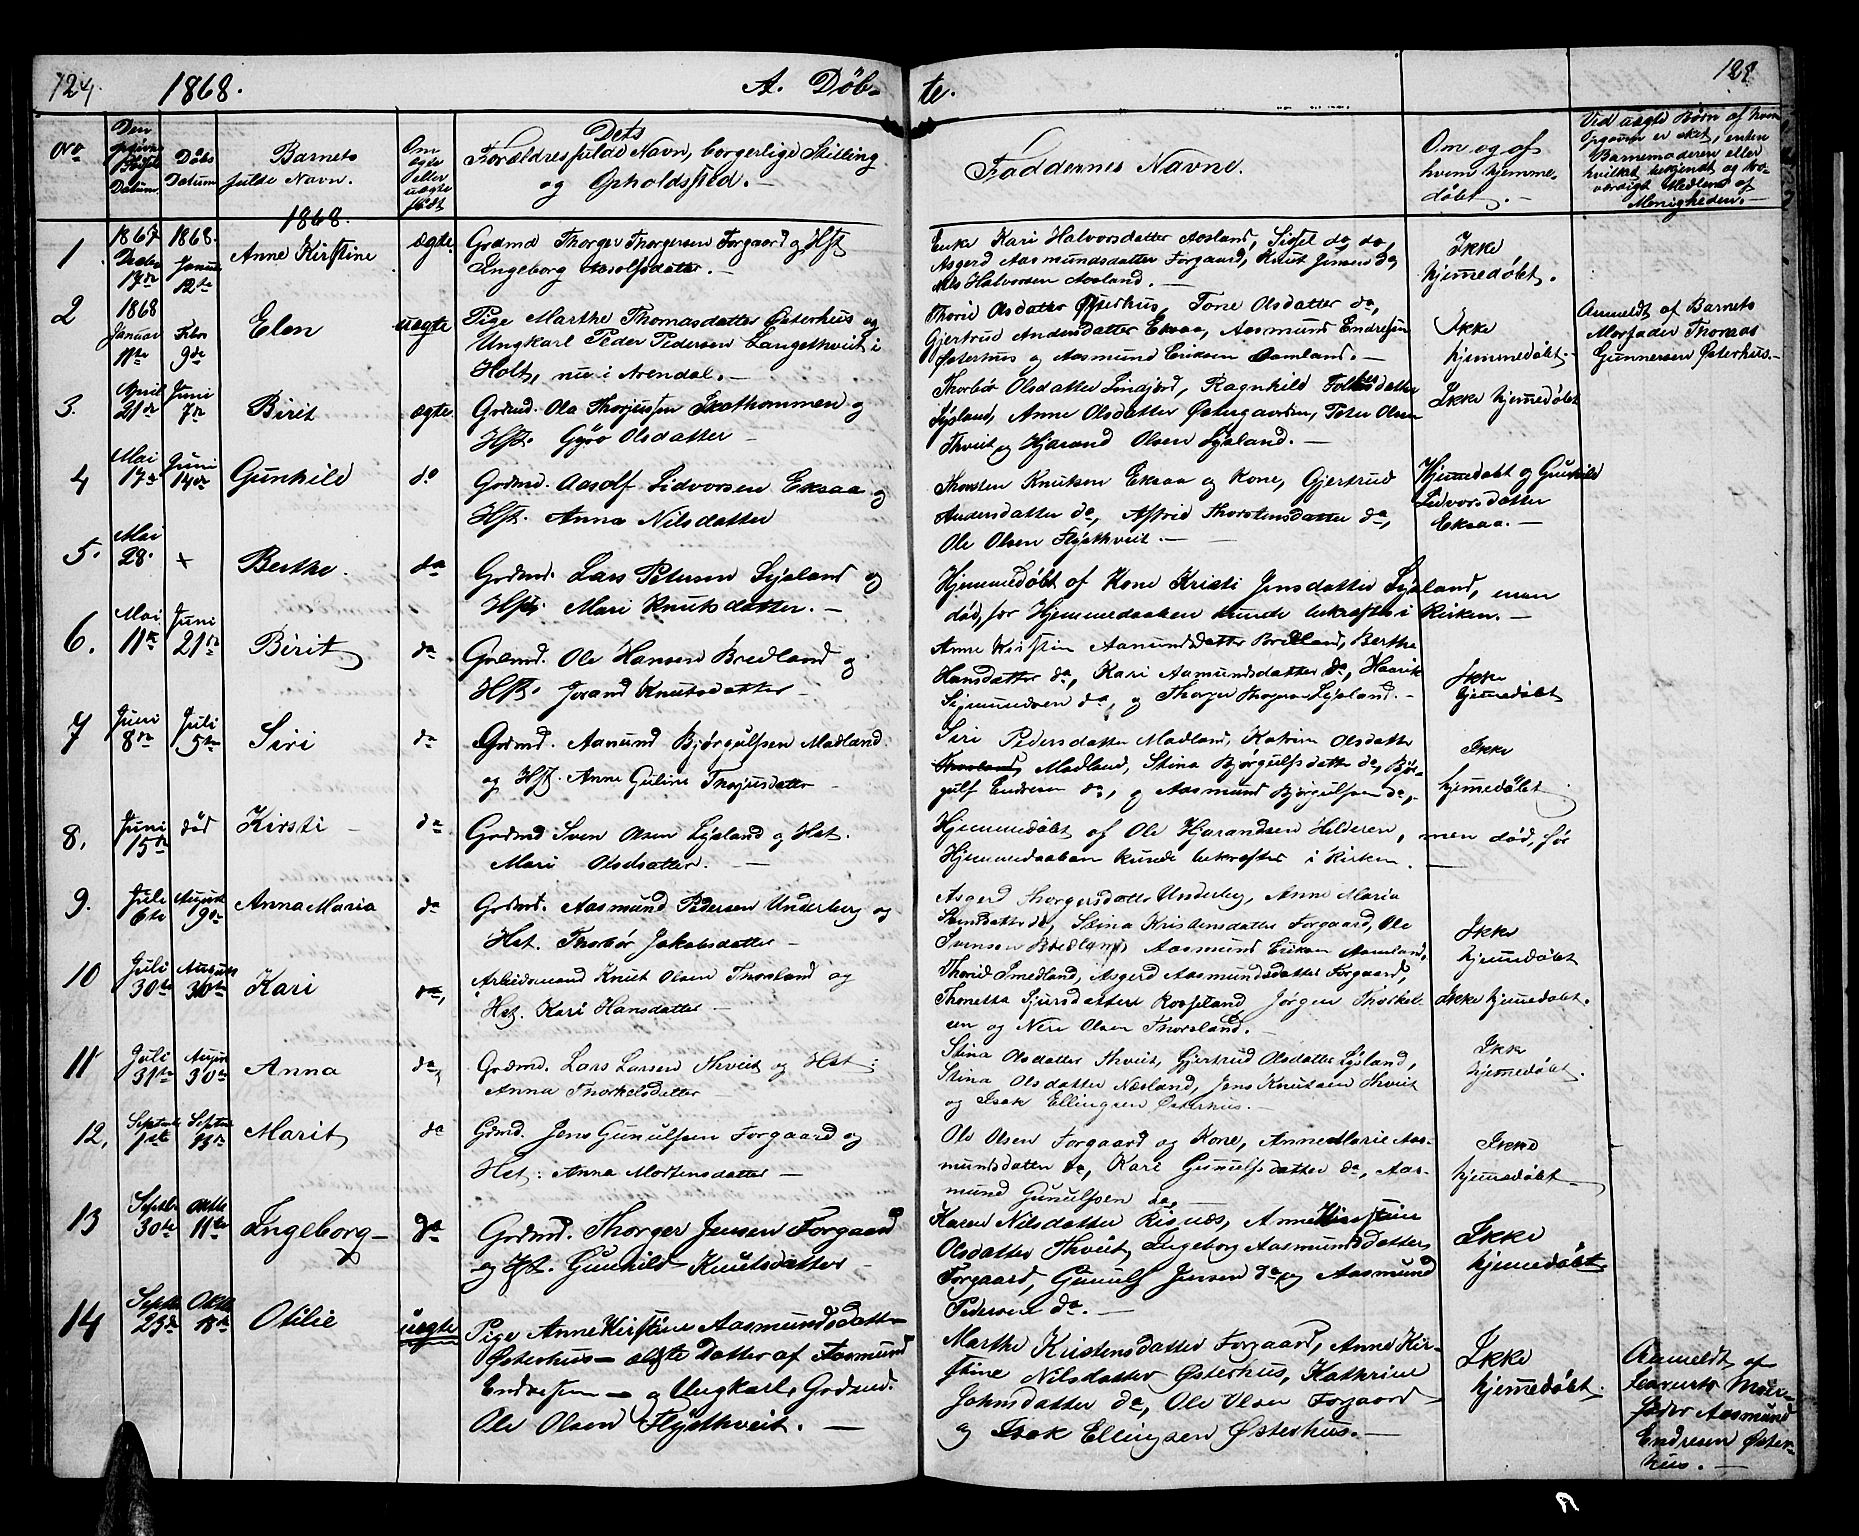 124. 1868. A. Döb- te. 125
No
Den
Døbs Datum
Barnets fulde Navn.
Om ægte eller uægte født
Dets
Forældres fulde Navn, borgerlige Stilling og Opholdssted. —
Faddernes Navne.
Om og af hvem hjemme-
døbt. —
Ved uægte Børn af hvem
er sket, enten
Barnemoderen eller
hvilket bekjendt og tro-
værdigt Medlem af
Menigheden. —
1868.
1 1867 Decbr 17de 1868. Januar 12te Anne Kirstine ægte.
Grdmd Thorger Thorgersen Forgaard og Hst
Ingeborg Aasolfsdatter. —
Enke Kari Halvorsdatter Aosland, Sissel do do,
Asgerd Aasmundsdatter Forgaard, Knut Jensen do,
Nils Halvorsen Aosland. —
Ikke
hjemedøbt.
2 1868 Januar 11te Febr 9de Elen uægte
Pige Marthe Thomasdatter Østerhus og
Ungkarl Peder Pedersen Langethveit i
Holt, nu i Arendal. —
Thorid Olsdatter Østerhus, Tone Olsdatter do,
Gjertrud Andersdatter Eksaa, Aasmund Endresen
Østerhus og Aasmund Eriksen Aamland. —
Ikke
hjemmedøbt. —
Anmeldt af Barnets
Morfader Thomas
Gunnersen Østerhus. —
3. April 21de Juni 7de Birit ægte.
Grdmd. Ola Thorjussen Skathommen og
Hst. Gyro Olsdatter —
Thorbør Olsdatter Lindjord, Ragnhild datter
Lysland, Anne Olsdatter Østergaarden, Peter Olsen
Thveit og Hjarand Olsen Lysland. —
Ikke hjemedøbt
4 Mai 17de Juni 14de Gunhild do
Grdmd. Aasolf Sidvorsen Eksaa og
Hst. Anna Nilsdatter
Thorsten Knutsen Eksaa og Kone, Gjertrud
Andersdatter do, Astrid Thorstensdatter do,
Ole Olsen Flyethveit. —
Hjemedøbt og Gunhild
Sidvorsdatter
Eksaa. —
5. Mai 28. + Berthe. do
Grdmd. Lars Petersen Lysland og
Hst. Mari Knutsdatter. —
Hjemmedøbt af Kone Kristi Jensdatter Lysland, men
død, før Hjemmedaaben kunde bekræftes i Kirken. —
6. Mai 11te Juni 21de Birit do
Grdmd. Ole Hansen Bredland og
Hst. Jorand Knutsdatter —
Anne Kirstin Aanundsdatter Bredland, Berthe
Hansdatter do, Kari Aamundsdatter do, Haavik
Sigmundsen do, og Thorger Lysland. —
Ikke
hjemedøbt
7 Juni 8de Juli 5te Siri do
Grdmd. Aanund Bjørgulfsen Madland
og Hst. Anne Guline Thorjusdatter —
Siri Pedersdatter Madland, Katrine Olsdatter
Madland, Stina Bjørgulfsdatter do, Bør-
gulf Endresen do, og Aasmund Bjørgulfsen do, —
Ikke
hjemedøbt
8, Juni 15de død Kirsti — do
Grdmd Sven Olsen Lysland og Hst.
Mari Olsdatter. —
Hjemmedøbt af Ole Hjarandsen Helderen, men død, før
Hjemmedaaben kunde bekræftes i Kirken. —
9. Juli 6te August 9de Anna Maria do
Grdmd. Aasmund Pedersen Underberg og
Hst. Thorbør Jakobsdatter —
Asgerd Thorgersdatter Underberg, Anne Maria
do, Stina Kristensdatter Forgaard, Ole
Svensen Bredland, Aasmund Eriksen Aamland,
Ikke
hjemedøbt
10 Juli 30te August 30te Kari do,
Arbeidsmand Knut Olsen Thorsland og
Hst. Kari Hansdatter —
Thorid Smedland, Asgerd Aasmundsdatter Forgaard,
Thonetta Sjursdatter Rosseland, Jørgen Thorkel-
sen og Neri Olsen Thorsland. —
Ikke hjemedøbt.
11 Juli 31te August 30te Anna do,
Grdmd. Lars Larsen Thveit og Hst:
Anna Thorkelsdatter —
Stina Olsdatter Thveit, Gjertrud Olsdatter Lysland,
Stina Olsdatter Næsland, Jens Knutsen Thveit
og Isak Ellingsen Østerhus. —
Ikke
hjemedøbt.
12, Septembr 1ste Septbr 13de Marit do
Grdmd. Jens Gunulfsen Forgaard og
Hst: Anna Mortensdatter —
Ole Olsen Forgaard og Kone, Anne Marie Aas-
mundsdatter do, Kari Gunulfsdatter do, Aas-
mund Gunulfsen do, —
Ikke
hjemedøbt —
13 Septbr 30te Oktbr 11te Ingeborg — do
Grdmd. Thorger Jensen Forgaard
og Hst. Gunhild Knutsdatter —
Karen Nilsdatter Risnes, Anne Kirstine
Olsdatter Thveit, Ingeborg Aasmundsdatter
Forgaard, Gunulf Jensen do og Aasmund
Pedersen do. —
Ikke
hjemedøbt.
14 Septbr 25de Oktbr 18de Otilie uægte
Pige Anne Kirstine Aasmundsdatter
Østerhus — ældste Datter af Aasmund
Endresen — og Ungkarl, Grdmd.
Ole Olsen Flyethveit. —
Marthe Kristensdatter Forgaard, Anne Kir-
stine Nilsdatter Østerhus, Kathrine
Johnsdatter do, Ole Olsen Forgaard
og Isak Ellingsen Østerhus. —
Ikke
hjemedøbt.
Anmeldt af
Barnets Mor-
fader Aasmund
Endresen Øster-
hus. —